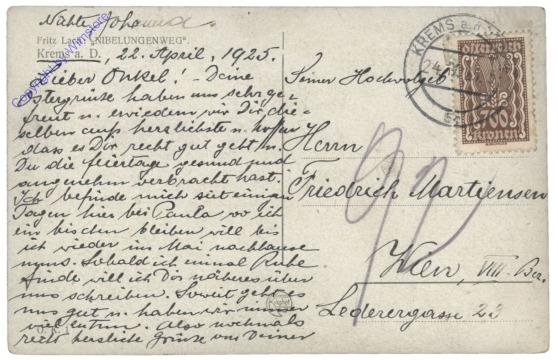 Nahte Johanna
Fritz Lang "NIBELUNGENWEG"
Krems a. D., 22. April, 1925.
Lieber Onkel! Deine
Ostergrüße haben uns sehr ge-
freut u. erwiedern wir Dir die-
selben aufs herzlichste u. hoffen
dass es Dir recht gut geht u.
Du die Feiertage gesund und
angenehm verbracht hast.
Ich befinde mich seit einigen
Tagen hier bei Paula wo ich
ein bischen bleiben will bis
ich wieder im Mai nachhause
muss. Sobald ich einmal Ruhe
finde will ich Dir näheres über
uns schreiben. Soweit geht es
uns gut u. haben wir immer
viel zu tun. Also nochmals
recht herzliche Grüße von Deiner
Seiner Hochwolgeb.
Herrn
Friedrich Martiensen
Wien, VIII. Bez.
Lederergasse 23
KREMS a.d.
österreich
kronen